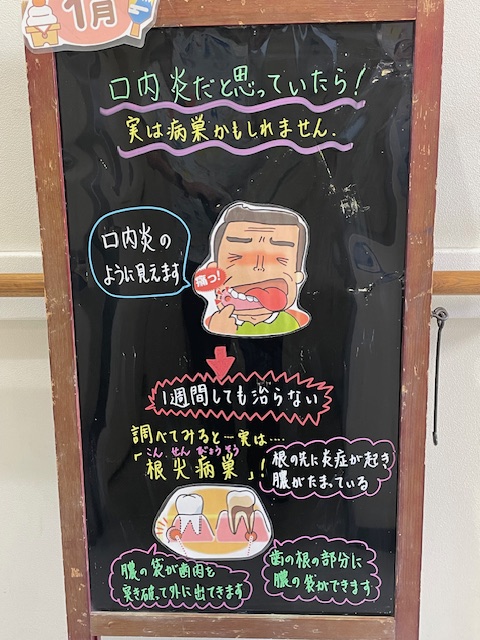 1月
口内炎だと思っていたら!
実は病巣かもしれません.
口内炎の
ように見えます
痛っ!
1週間しても治らない
調べてみると…実は….
こん せん びょうそう
「根尖病巣」!
根の先に炎症が起き
膿がたまっている
膿の袋が歯肉を
突き破って外に出てきます
歯の根の部分に
膿の袋ができます